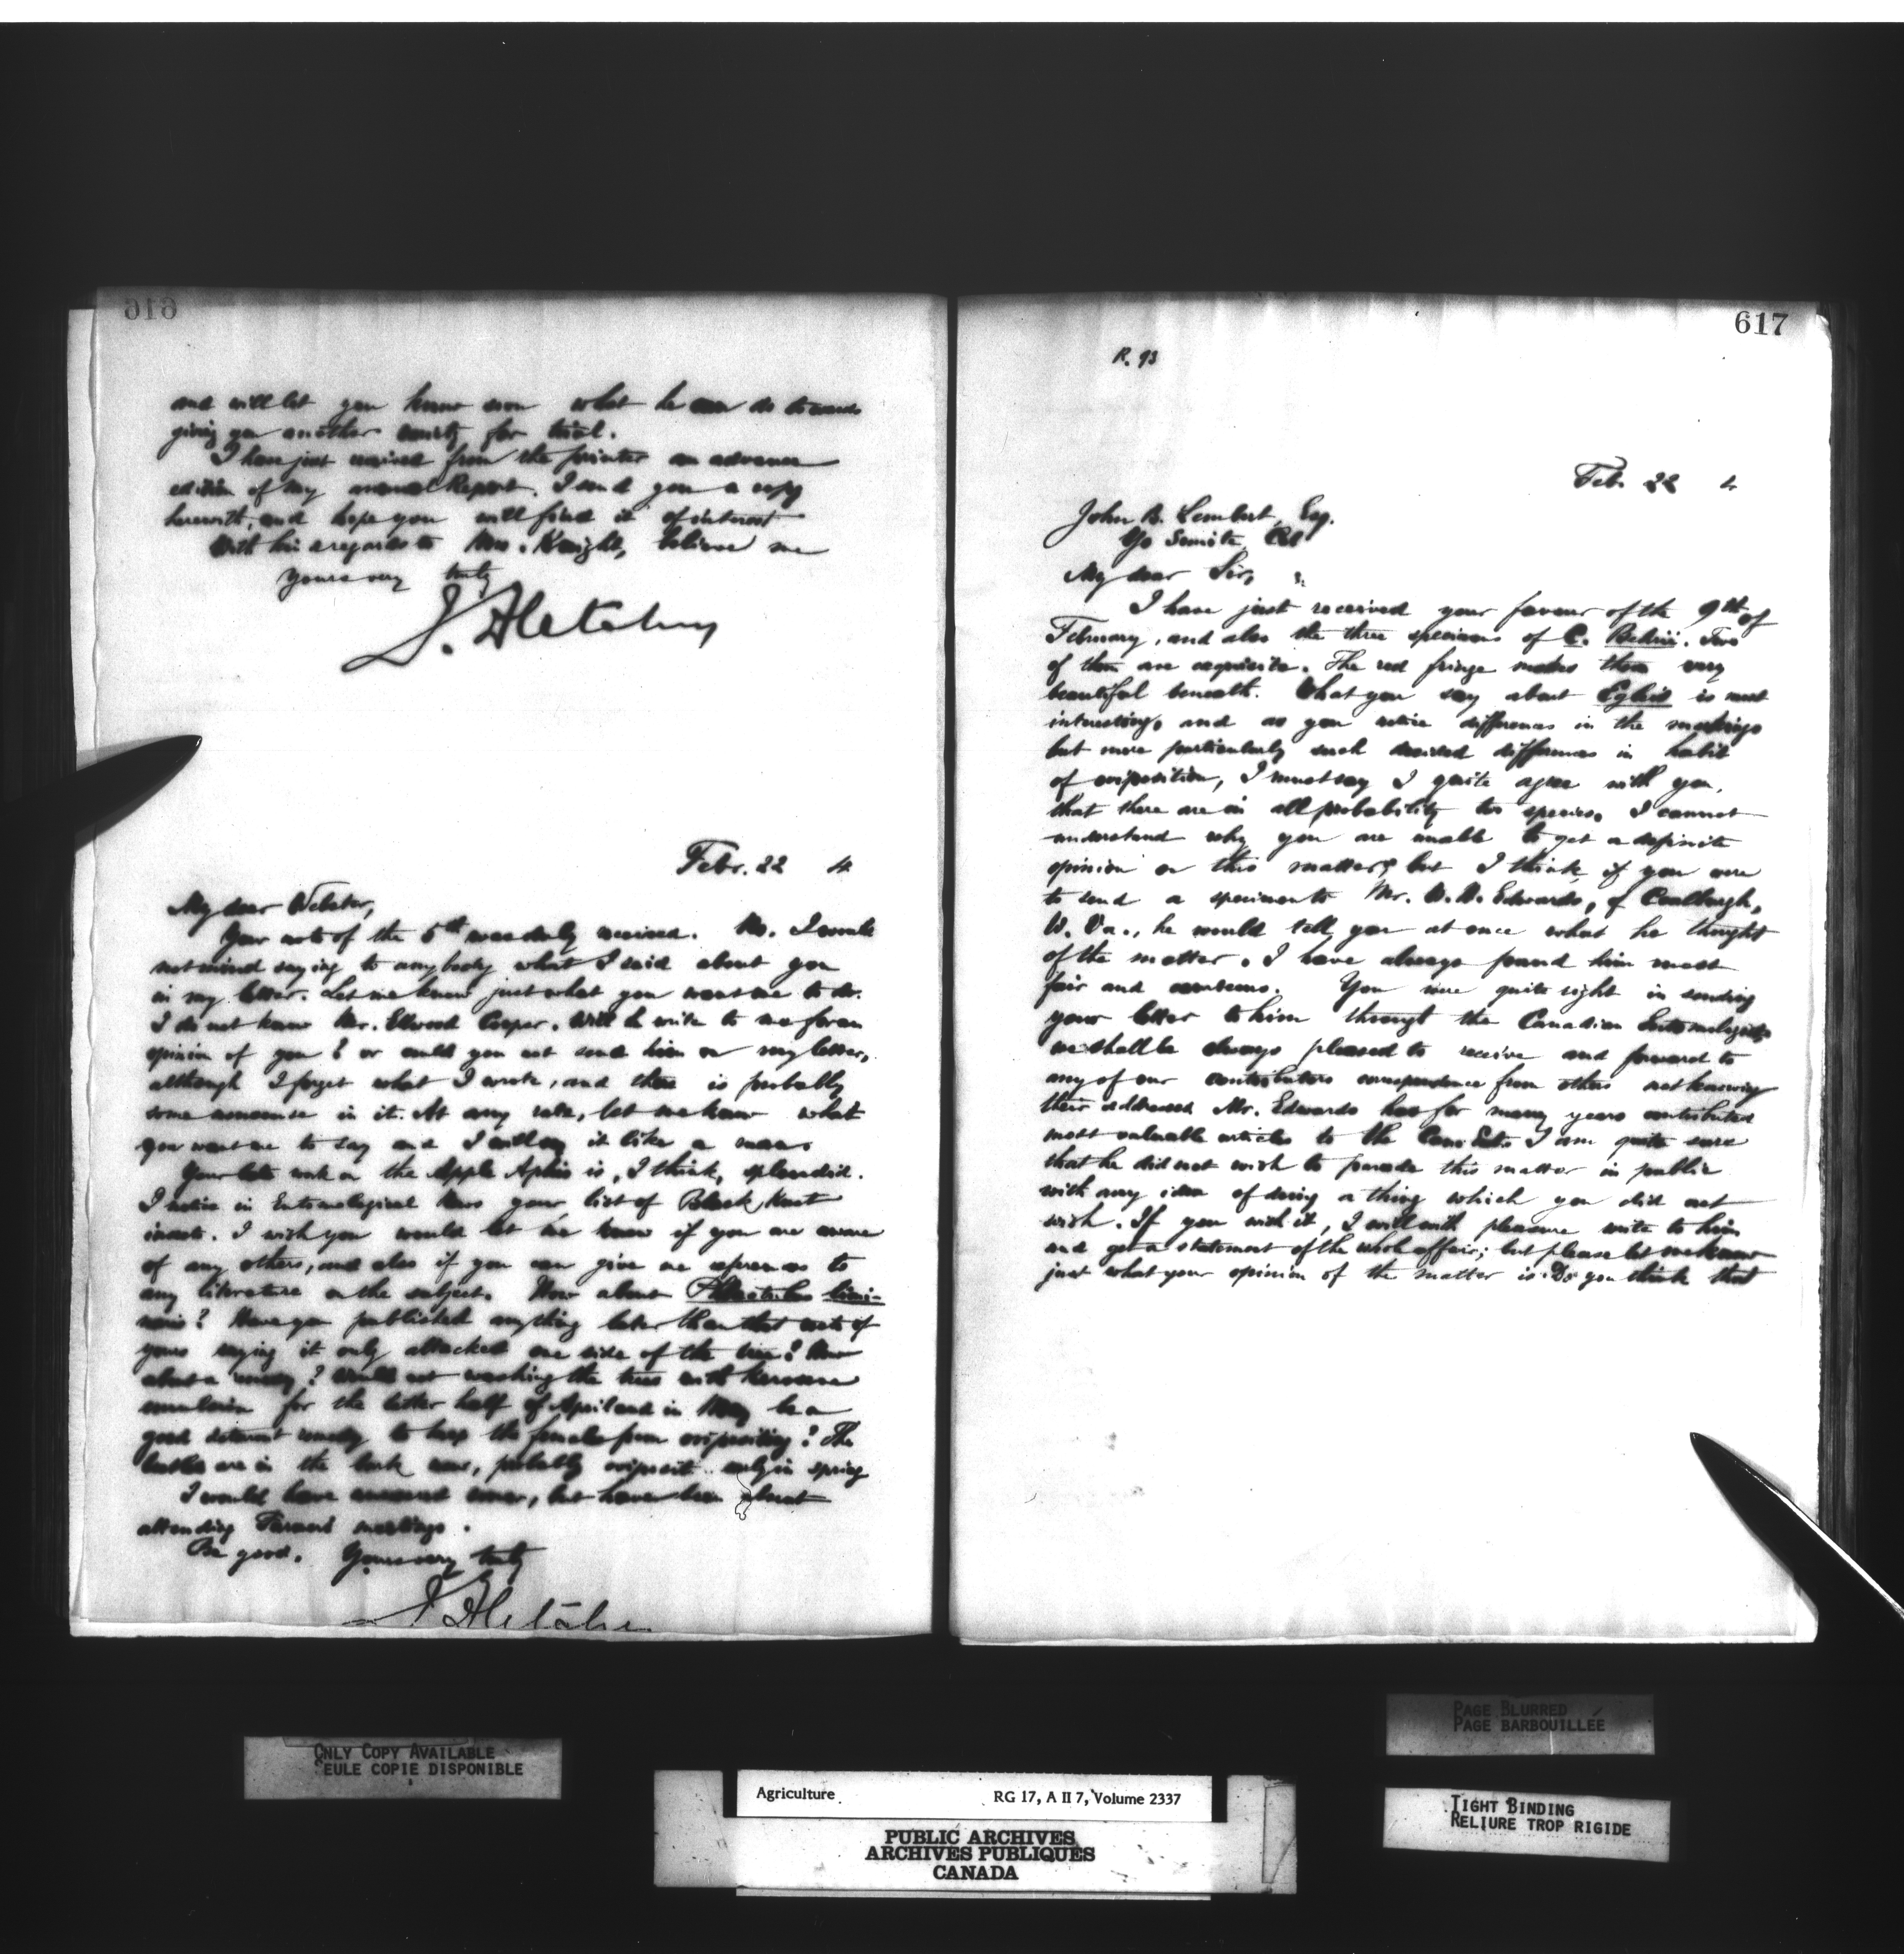 616
and will let you know soon what he can do towards
giving you another county for trial.
I have just received from the printer an advance
edition of my annual Report. I send you a copy
herewith, and hope you will find it of interest
With kind regards to Mrs. Knight, believe me
Yours very truly
J. Fletcher
Febr. 22 4
My dear Webster,
Your note of the 5th was duly received. No. I would
not mind saying to anybody what I said about you
in my letter. Let me know just what you want me to do.
I do not know Mr. Ellwood Cooper. Will he write to me for an
opinion of you? or could you not send him on my letter,
although I forget what I wrote, and there is probably
some nonsense in it. At any rate, let me know what
you want me to say and I will say it like a man.
Your late work on the Apple Aphis is, I think, splendid.
I notice in Entomological News your list of Black Knot
insects. I wish you would let me know if you are aware
of any others, and also if you can give me references to
any literature on the subject. How about
Have you published anything later than that note of
yours saying it only attacked one side of the tree? How
about a remedy? Would not washing the trees with kerosene
emulsion for the latter half of April and in May be a
good deterrent remedy to keep the females from ovipositing? The
beetles are in the bark now, probably oviposit only in spring
I would have answered sooner, but have been absent
attending Farmers' meetings.
Be good. Yours very truly
J. Fletcher
617
R. 93
Feb. 22 4
John B. Lembert, Esq.
Yo Semite, Cal
My dear Sir,
I have just received your favour of the 9th of
February, and also the three specimens of C. Behrii. Two
of them are exquisite. The red fringe makes them very
beautiful beneath. What you say about Egleis is most
interesting, and as you notice differences in the markings
but more particularly such decided differences in habit
of oviposition, I must say I quite agree with you,
that there are in all probability two species. I cannot
understand why you are unable to get a definite
opinion on this matter, but I think if you were
to send a specimen to Mr. W. H. Edwards, of Coalburgh,
W. Va., he would tell you at once what he thought
of the matter. I have always found him most
fair and courteous. You were quite right in sending
your letter to him through the Canadian Entomologist
we shall be always pleased to receive and forward to
any of our contributors correspondence from others not knowing
their addresses Mr. Edwards has for many years contributed
most valuable articles to the Can. Ent. I am quite sure
that he did not wish to parade this matter in public
with any idea of doing a thing which you did not
wish. If you wish it, I will with pleasure write to him
and get a statement of the whole affair; but please let me know
just what your opinion of the matter is. Do you think that
ONLY COPY AVAILABLE
SEULE COPIE DISPONIBLE
PAGE BLURRED
PAGE BARBOUILLÉE
TIGHT BINDING
RELIURE TROP RIGIDE
Agriculture RG 17, A II 7, Volume 2337
PUBLIC ARCHIVES
ARCHIVES PUBLIQUES
CANADA